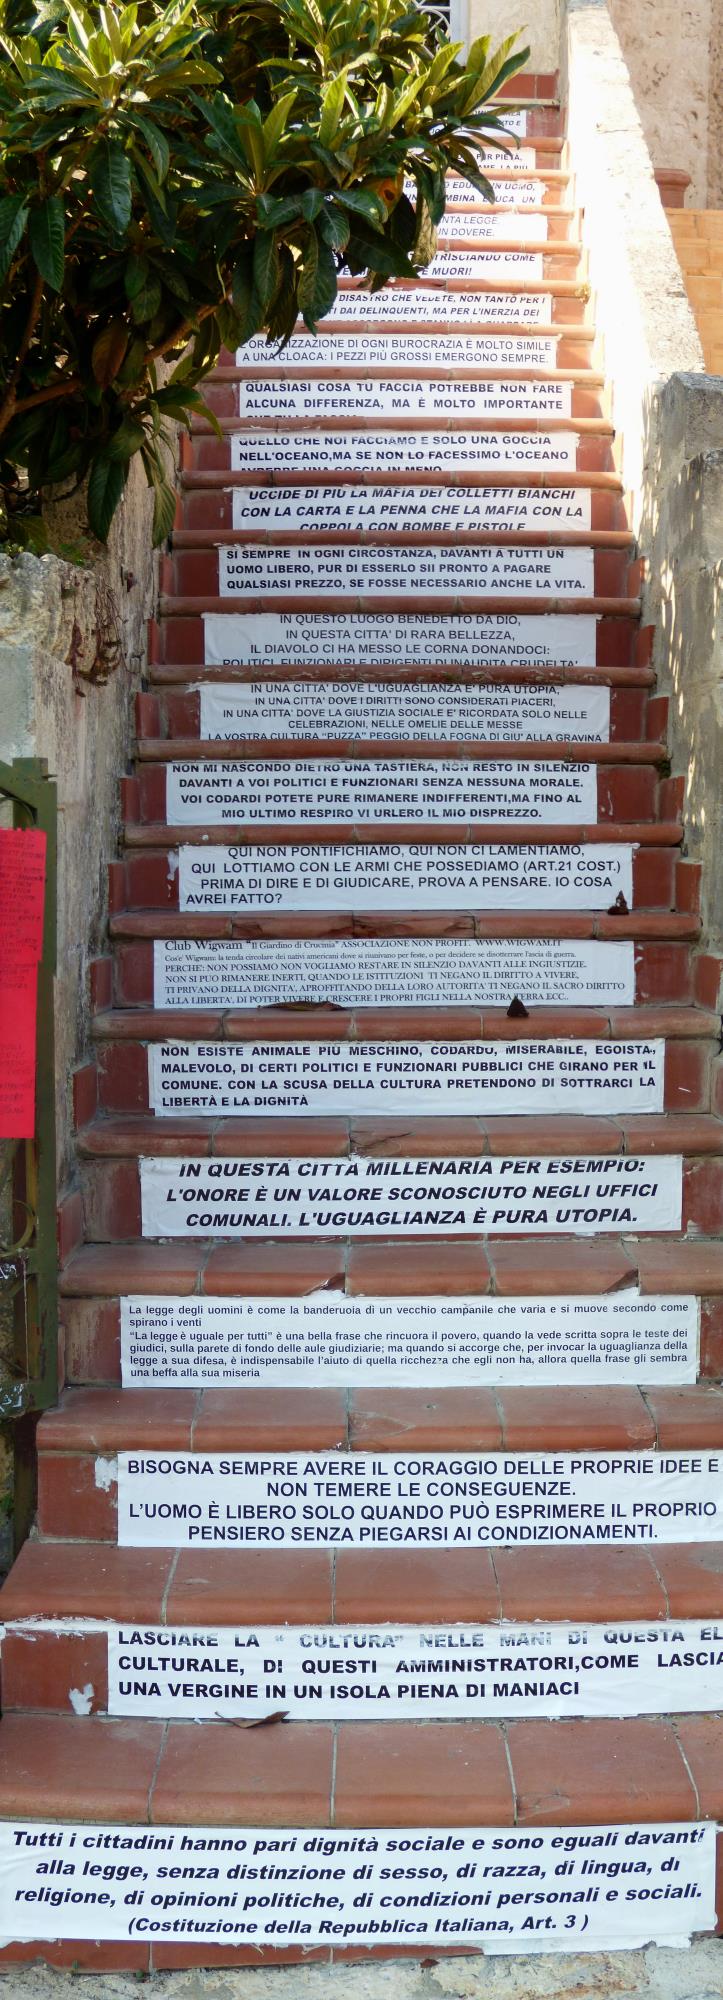 PER PIETÀ,
UN UOMO,
UN
LEGGE.
UN DOVERE.
STRISCIANDO COME
E MUORI!
DISASTRO CHE VEDETE, NON TANTO PER I
DAI DELINQUENTI, MA PER L'INERZIA DEI
L'ORGANIZZAZIONE DI OGNI BUROCRAZIA È MOLTO SIMILE
A UNA CLOACA: I PEZZI PIÙ GROSSI EMERGONO SEMPRE.
QUALSIASI COSA TU FACCIA POTREBBE NON FARE
ALCUNA DIFFERENZA, MA È MOLTO IMPORTANTE
QUELLO CHE NOI FACCIAMO E SOLO UNA GOCCIA
NELL'OCEANO,MA SE NON LO FACESSIMO L'OCEANO
AVREBBE UNA GOCCIA IN MENO
UCCIDE DI PIÙ LA MAFIA DEI COLLETTI BIANCHI
CON LA CARTA E LA PENNA CHE LA MAFIA CON LA
COPPOLA CON BOMBE E PISTOLE
SI SEMPRE IN OGNI CIRCOSTANZA, DAVANTI A TUTTI UN
UOMO LIBERO, PUR DI ESSERLO SII PRONTO A PAGARE
QUALSIASI PREZZO, SE FOSSE NECESSARIO ANCHE LA VITA.
IN QUESTO LUOGO BENEDETTO DA DIO,
IN QUESTA CITTA' DI RARA BELLEZZA,
IL DIAVOLO CI HA MESSO LE CORNA DONANDOCI:
POLITICI, FUNZIONARI E DIRIGENTI DI INAUDITA CRUDELTA'
IN UNA CITTA' DOVE L'UGUAGLIANZA E' PURA UTOPIA,
IN UNA CITTA' DOVE I DIRITTI SONO CONSIDERATI PIACERI,
IN UNA CITTA' DOVE LA GIUSTIZIA SOCIALE E' RICORDATA SOLO NELLE
CELEBRAZIONI, NELLE OMELIE DELLE MESSE
LA VOSTRA CULTURA "PUZZA" PEGGIO DELLA FOGNA DI GIU' ALLA GRAVINA
NON MI NASCONDO DIETRO UNA TASTIERA, NON RESTO IN SILENZIO
DAVANTI A VOI POLITICI E FUNZIONARI SENZA NESSUNA MORALE.
VOI CODARDI POTETE PURE RIMANERE INDIFFERENTI,MA FINO AL
MIO ULTIMO RESPIRO VI URLERO IL MIO DISPREZZO.
QUI NON PONTIFICHIAMO, QUI NON CI LAMENTIAMO,
QUI LOTTIAMO CON LE ARMI CHE POSSEDIAMO (ART.21 COST.)
PRIMA DI DIRE E DI GIUDICARE, PROVA A PENSARE. IO COSA
AVREI FATTO?
Club Wigwam "Il Giardino di Crucinia" ASSOCIAZIONE NON PROFIT. WWW.WIGWAM.IT
Cos'e' Wigwam: la tenda circolare dei nativi americani dove si riunivano per feste, o per decidere se disotterrare l'ascia di guerra.
PERCHE': NON POSSIAMO NON VOGLIAMO RESTARE IN SILENZIO DAVANTI ALLE INGIUSTIZIE.
NON SI PUO RIMANERE INERTI, QUANDO LE ISTITUZIONI TI NEGANO IL DIRITTO A VIVERE,
TI PRIVANO DELLA DIGNITA', APROFITTANDO DELLA LORO AUTORITA' TI NEGANO IL SACRO DIRITTO
ALLA LIBERTA', DI POTER VIVERE E CRESCERE I PROPRI FIGLI NELLA NOSTRA TERRA ECC..
NON ESISTE ANIMALE PIÙ MESCHINO, CODARDO, MISERABILE, EGOISTA,
MALEVOLO, DI CERTI POLITICI E FUNZIONARI PUBBLICI CHE GIRANO PER IL
COMUNE. CON LA SCUSA DELLA CULTURA PRETENDONO DI SOTTRARCI LA
LIBERTÀ E LA DIGNITÀ
IN QUESTA CITTÀ MILLENARIA PER ESEMPIO:
L'ONORE È UN VALORE SCONOSCIUTO NEGLI UFFICI
COMUNALI. L'UGUAGLIANZA È PURA UTOPIA.
La legge degli uomini è come la banderuola di un vecchio campanile che varia e si muove secondo come
spirano i venti
"La legge è uguale per tutti" è una bella frase che rincuora il povero, quando la vede scritta sopra le teste dei
giudici, sulla parete di fondo delle aule giudiziarie; ma quando si accorge che, per invocar la uguaglianza della
legge a sua difesa, è indispensabile l'aiuto di quella ricchezza che egli non ha, allora quella frase gli sembra
una beffa alla sua miseria
BISOGNA SEMPRE AVERE IL CORAGGIO DELLE PROPRIE IDEE E
NON TEMERE LE CONSEGUENZE.
L'UOMO È LIBERO SOLO QUANDO PUÒ ESPRIMERE IL PROPRIO
PENSIERO SENZA PIEGARSI AI CONDIZIONAMENTI.
LASCIARE LA " CULTURA" NELLE MANI DI QUESTA EL
CULTURALE, DI QUESTI AMMINISTRATORI,COME LASCIA
UNA VERGINE IN UN ISOLA PIENA DI MANIACI
Tutti i cittadini hanno pari dignità sociale e sono eguali davanti
alla legge, senza distinzione di sesso, di razza, di lingua, di
religione, di opinioni politiche, di condizioni personali e sociali.
(Costituzione della Repubblica Italiana, Art. 3 )